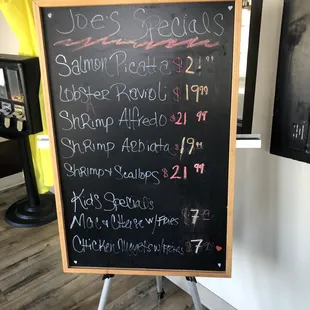 Joe's Specials
Salmon Picatta $21.99
Lobster Ravioli $19.99
Shrimp Alfredo $21.99
Shrimp Arbiata $19.99
Shrimp & Scallops $21.99
Kids Specials
Mac & Cheese w/Fries $7.99
Chicken Nuggets w/Fries $7.99